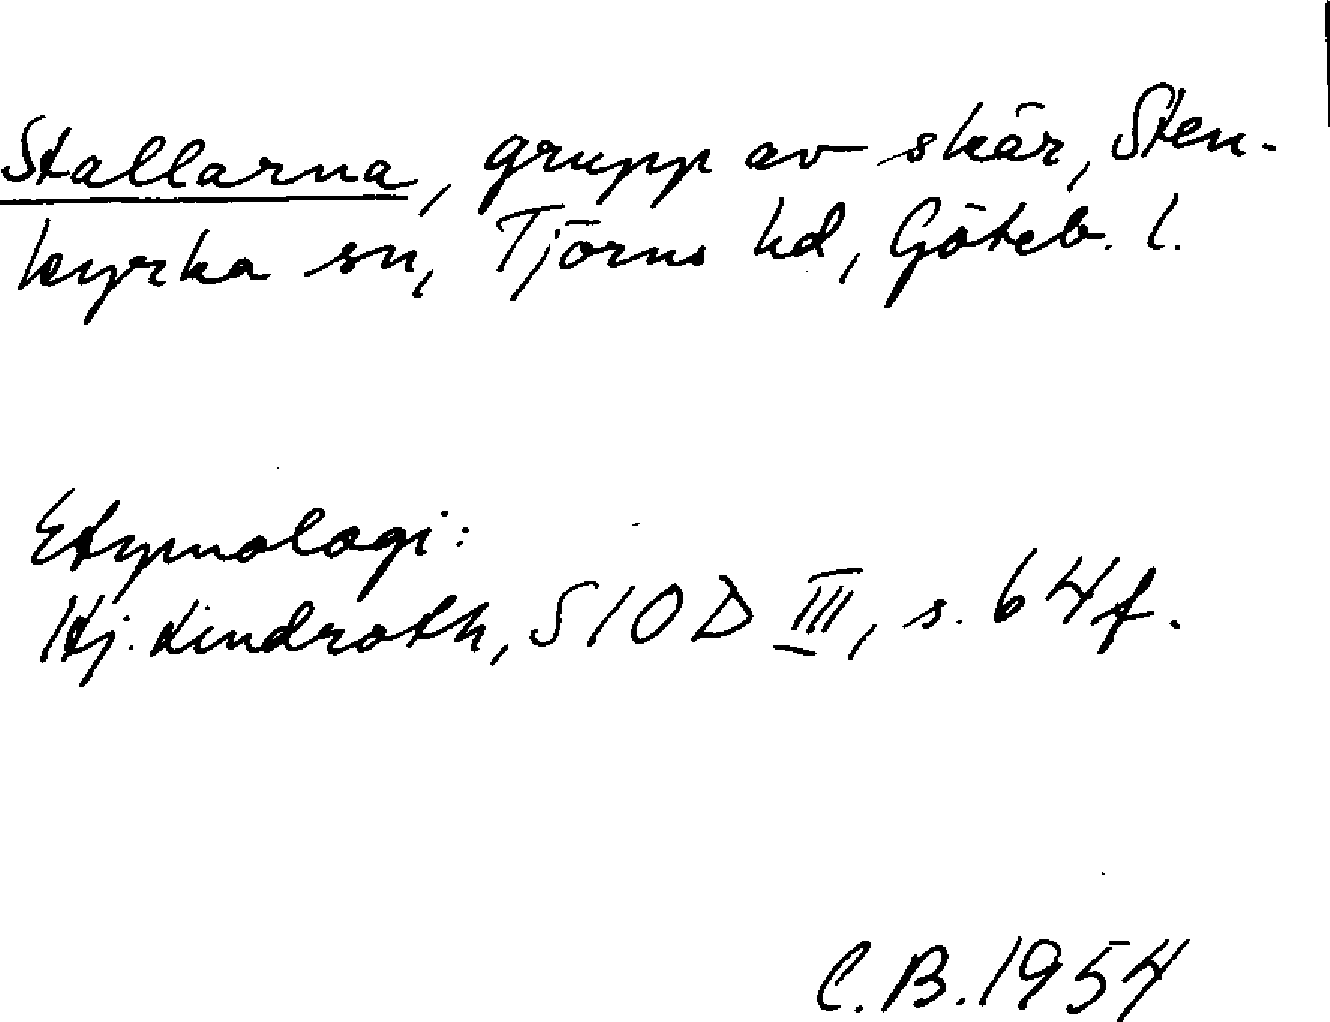 Stallarna, grupp av skär, Sten-
kyrka sn, Tjörns hd, Göteb. l.
Etymologi:
Hj. Lindroth, SIOD III, s. 64 f.
C.B. 1954